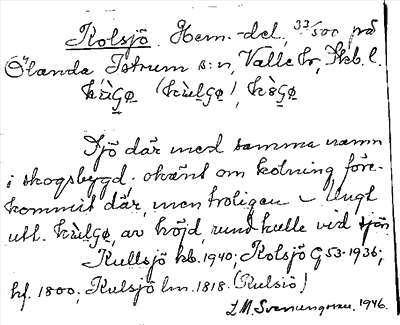 Kolsjö. Hem.-del, 33/500 på
Ölanda Istrum s:n, Valle hr, Skb. l.
kùG̠ø (kùlG̠ø), kòG̠ø
Sjö där med samma namn
i skogsbygd. okänt om kolning före-
kommit där, men troligen – Ungt
utt. kùlG̠ø, av höjd, rund kulle vid sjön
Kullsjö kb. 1940; Kolsjö G 53. 1936;
hf. 1800; Kulsjö lm. 1818. (Kulsiö)
1946.